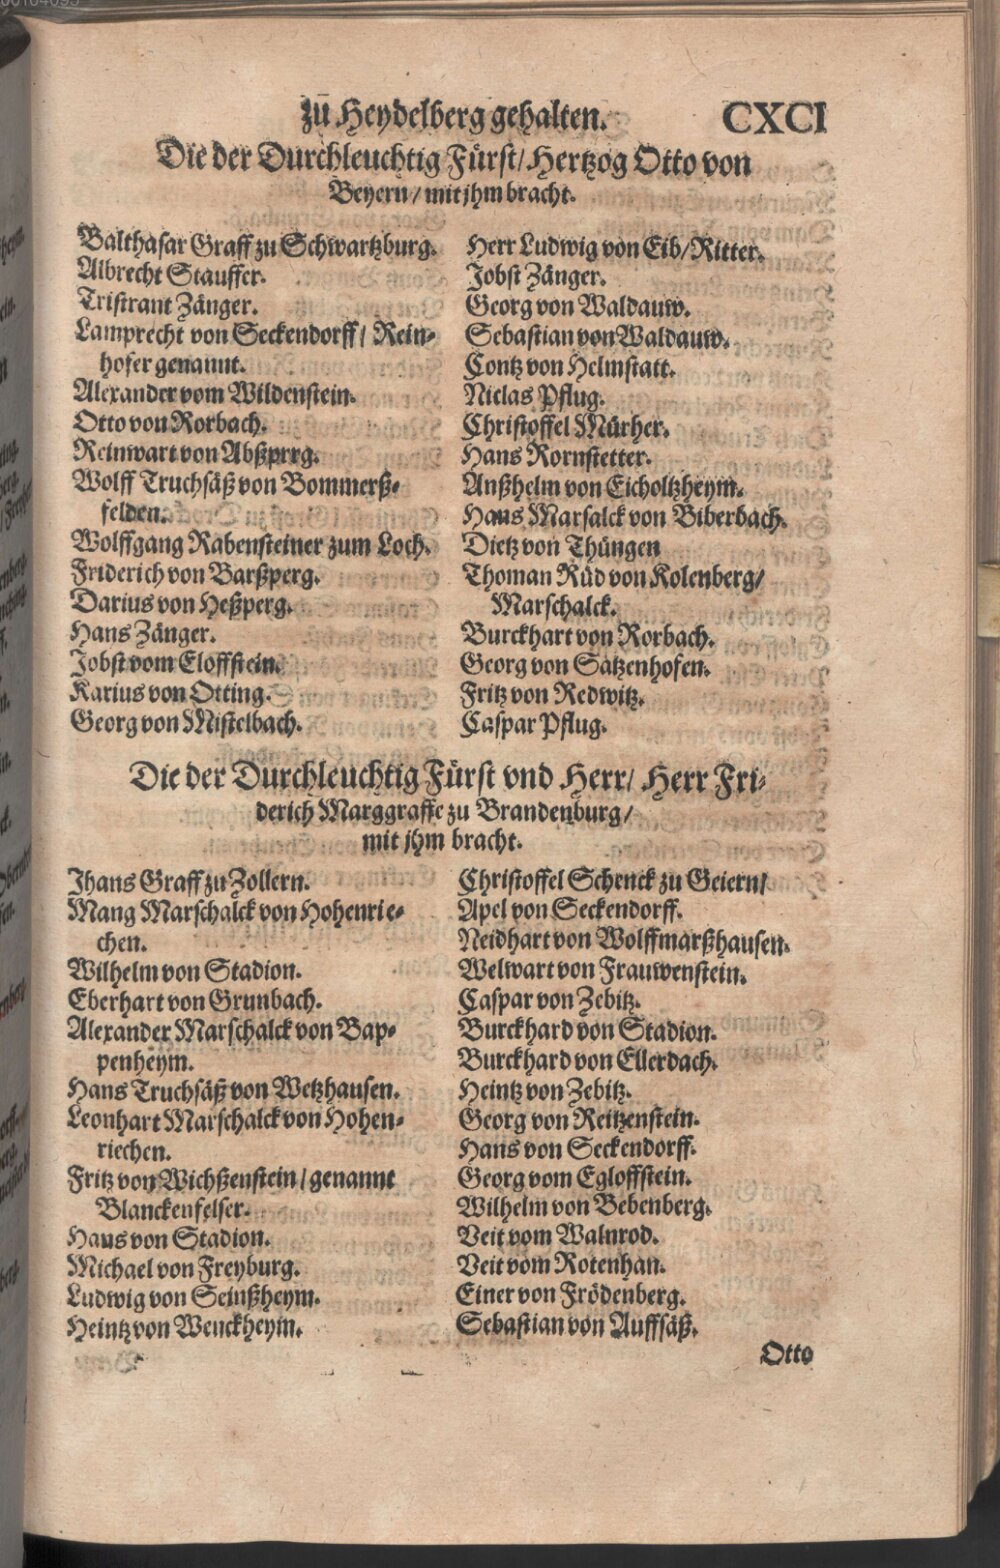 00104095
zů Heydelberg gehalten. CXCI
Die der Durchleuchtig Fürst / Hertzog Otto von
Beyern / mit jhm bracht.
Balthasar Graff zu Schwartzburg.
Albrecht Stauffer.
Tristrant Zänger.
Lamprecht von Seckendorff / Rein-
hofer genannt.
Alexander vom Wildenstein.
Otto von Rorbach.
Reinwart von Abßprrg.
Wolff Truchsäß von Bommerß-
felden.
Wolffgang Rabensteiner zum Loch.
Friderich von Barßperg.
Darius von Heßperg.
Hans Zänger.
Jobst vom Eloffstein.
Karius von Otting.
Georg von Mistelbach.
Herr Ludwig von Eib / Ritter.
Jobst Zänger.
Georg von Waldauw.
Sebastian von Waldauw.
Contz von Helmstatt.
Niclas Pflug.
Christoffel Mürher.
Hans Rornstetter.
Anßhelm von Eicholtzheym.
Hans Marsalck von Biberbach.
Dietz von Thüngen
Thoman Rüd von Kolenberg /
Marschalck.
Burckhart von Rorbach.
Georg von Sätzenhofen.
Fritz von Redwitz.
Caspar Pflug.
Die der Durchleuchtig Fürst vnd Herr / Herr Fri-
derich Marggraffe zu Brandenburg /
mit jhm bracht.
Jhans Graff zu Zollern.
Mang Marschalck von Hohenrie-
chen.
Wilhelm von Stadion.
Eberhart von Grunbach.
Alexander Marschalck von Bap-
penheym.
Hans Truchsäß von Wetzhausen.
Leonhart Marschalck von Hohen-
riechen.
Fritz von Wichßenstein / genannt
Blanckenfelser.
Hans von Stadion.
Michael von Freyburg.
Ludwig von Seinßheym.
Heintz von Wenckheym.
Christoffel Schenck zu Geiern /
Apel von Seckendorff.
Neidhart von Wolffmarßhausen.
Welwart von Frauwenstein.
Caspar von Zebitz.
Burckhard von Stadion.
Burckhard von Ellerbach.
Heintz von Zebitz.
Georg von Reitzenstein.
Hans von Seckendorff.
Georg vom Egloffstein.
Wilhelm von Bebenberg.
Veit vom Walnrod.
Veit vom Rotenhan.
Einer von Frödenberg.
Sebastian von Auffsäß.
Otto